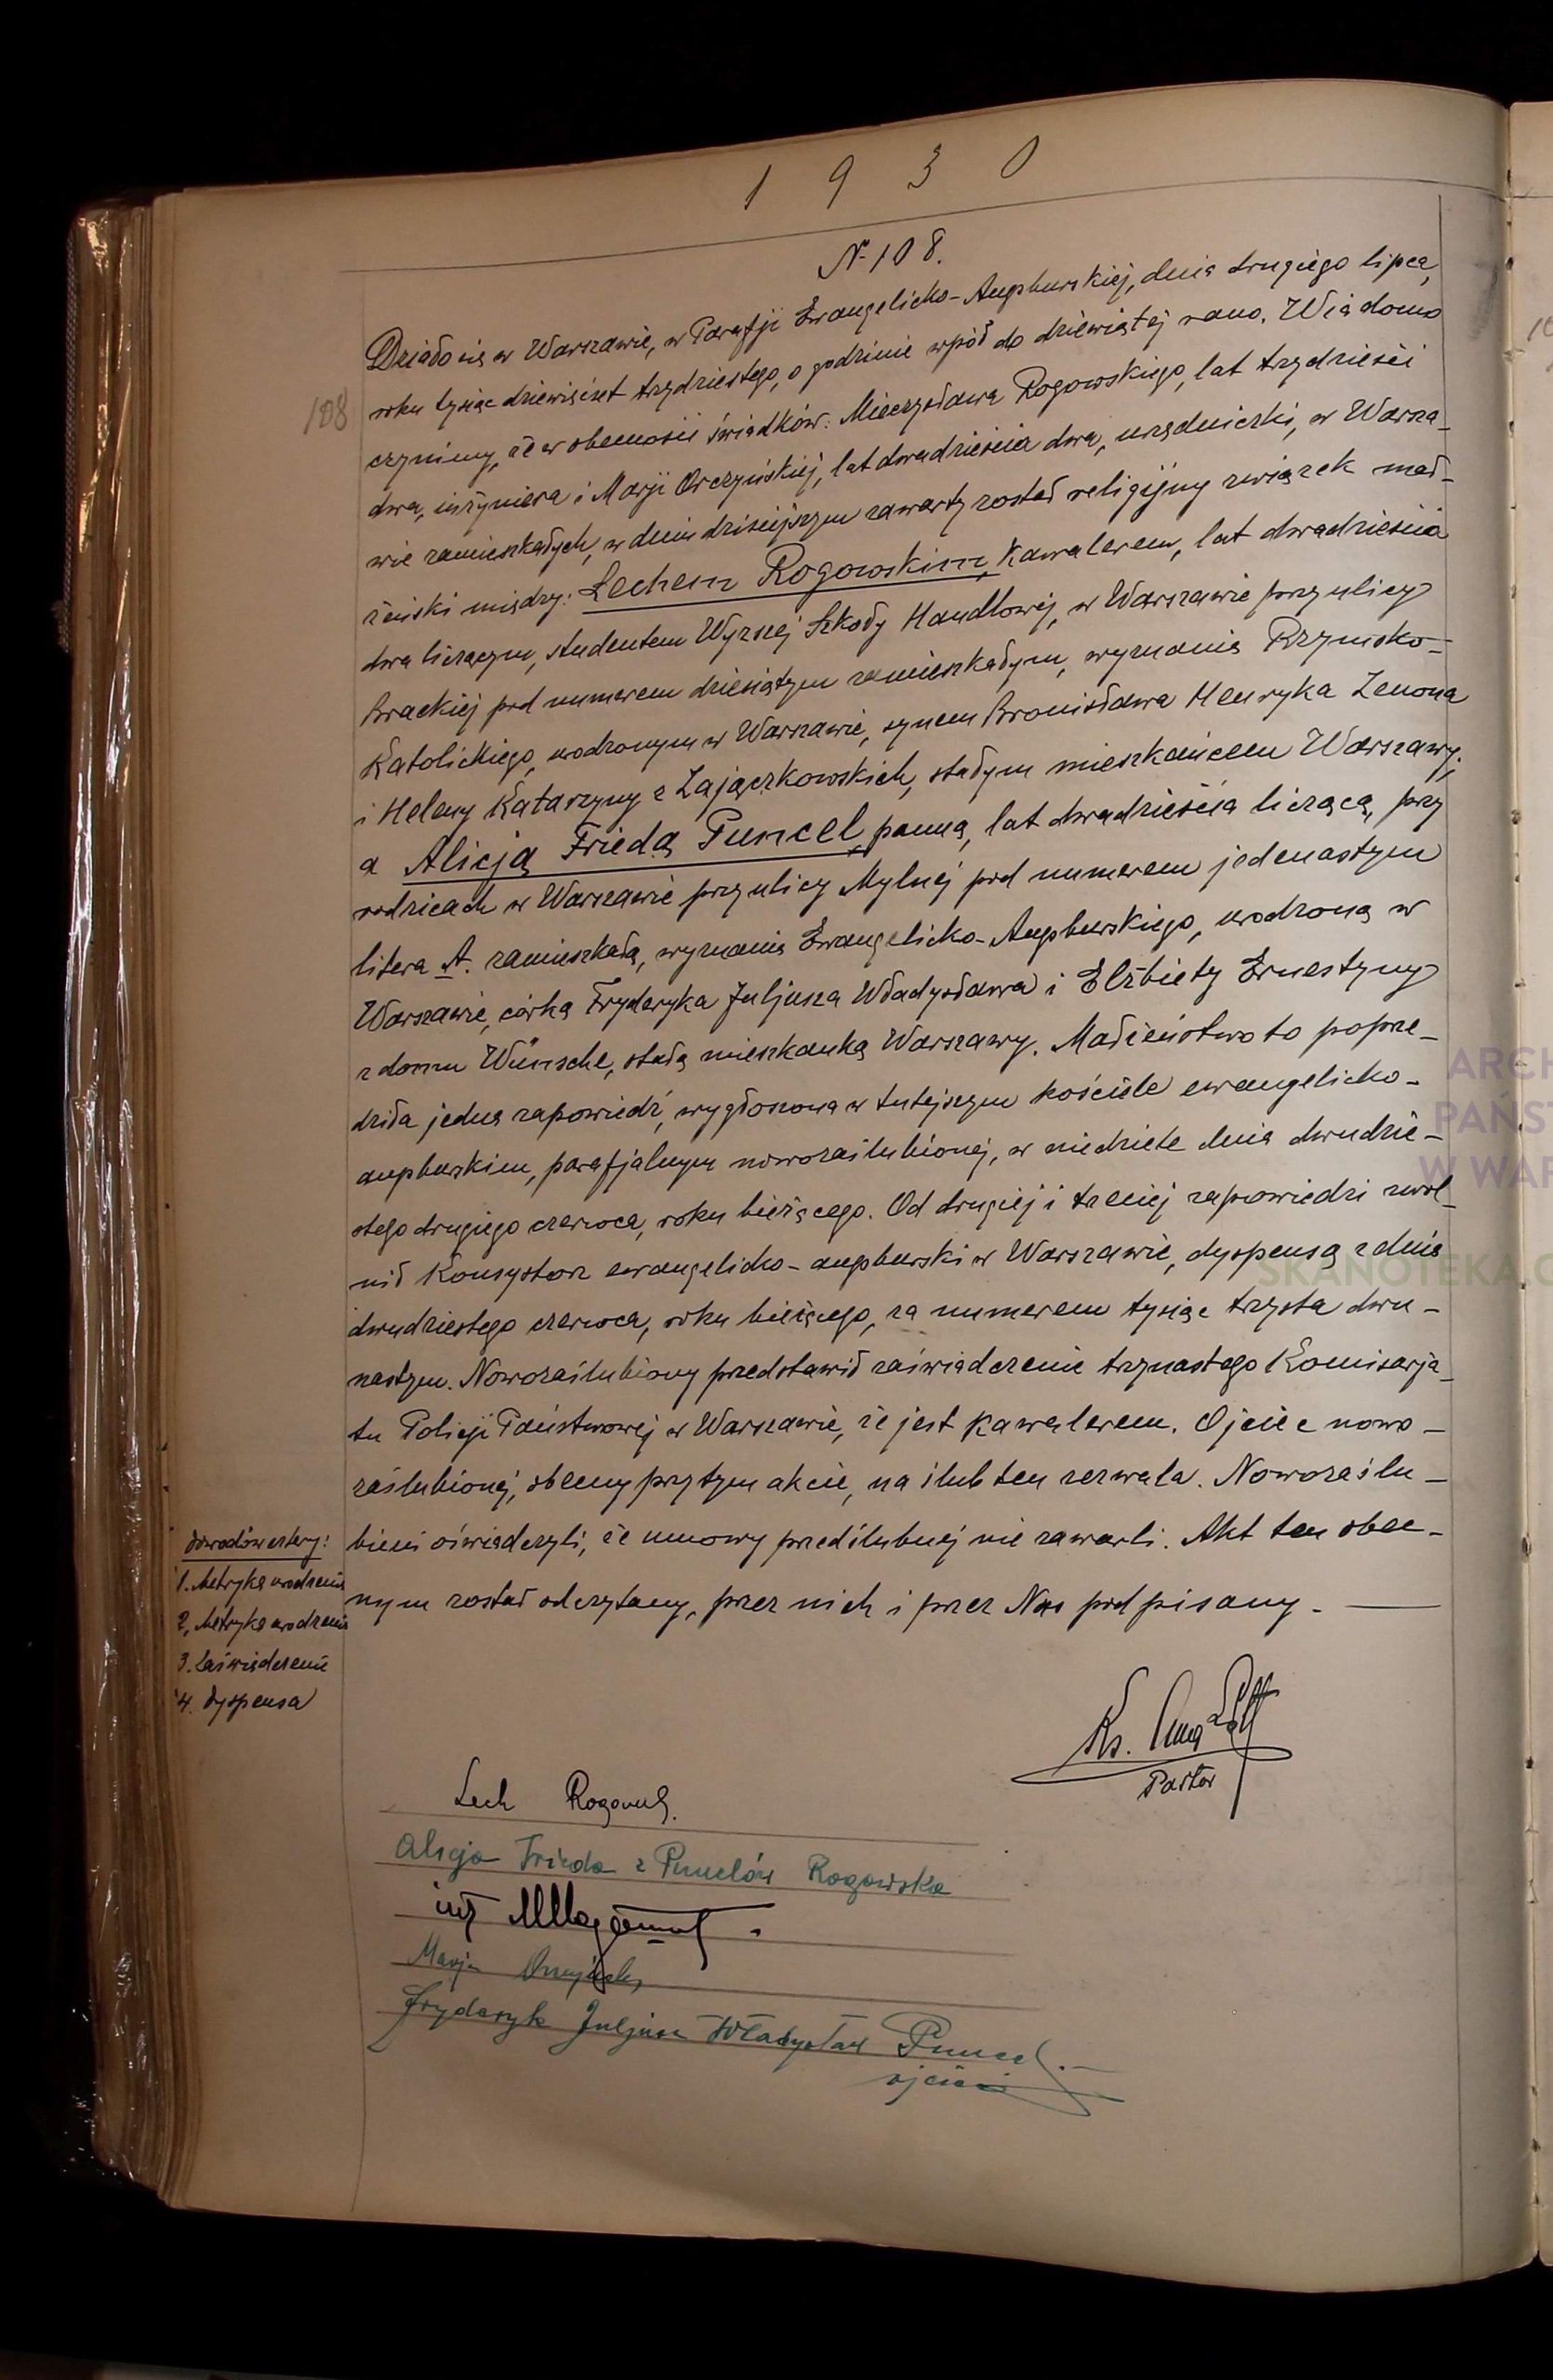 1930
№ 108.
108
Działo się w Warszawie, w Parafji Ewangelicko-Augsburskiej, dnia drugiego lipca,
roku tysiąc dziewięćset trzydziestego, o godzinie wpół do dziewiątej rano. Wiadomo
czynimy, że w obecności świadków: Mieczysława Rogowskiego, lat trzydzieści
dwa, inżyniera i Marji Orczyńskiej, lat dwadzieścia dwa, urzędniczki, w Warsza-
wie zamieszkałych, w dniu dzisiejszym zawarty został religijny związek mał-
żeński między: Lechem Rogowskim, kawalerem, lat dwadzieścia
dwa liczącym, studentem Wyższej Szkoły Handlowej, w Warszawie przy ulicy
Brackiej pod numerem dziesiątym zamieszkałym, wyznania Rzymsko-
Katolickiego, urodzonym w Warszawie, synem Bronisława Henryka Zenona
i Heleny Katarzyny z Zajączkowskich, stałym mieszkańcem Warszawy;
a Alicją Friedą Puncel, panną, lat dwadzieścia liczącą, przy
rodzicach w Warszawie przy ulicy Mylnej pod numerem jedenastym
litera A. zamieszkałą, wyznania Ewangelicko-Augsburskiego, urodzoną w
Warszawie, córką Fryderyka Juljusza Władysława i Elżbiety Ernestyny
z domu Wünsche, stałą mieszkanką Warszawy. Małżeństwo to poprze-
dziła jedna zapowiedź, wygłoszona w tutejszym kościele ewangelicko-
augsburskim, parafjalnym nowozaślubionej, w niedzielę dnia dwudzie-
stego drugiego czerwca, roku bieżącego. Od drugiej i trzeciej zapowiedzi zwol-
nił Konsystorz ewangelicko-augsburski w Warszawie, dyspensą z dnia
dwudziestego czerwca, roku bieżącego, za numerem tysiąc trzysta dwu-
nastym. Nowozaślubiony przedstawił zaświadczenie trzynastego Komisarja-
tu Policji Państwowej w Warszawie, że jest kawalerem. Ojciec nowo-
zaślubionej, obecny przy tym akcie, na ślub ten zezwala. Nowozaślu-
bieni oświadczyli, że umowy przedślubnej nie zawarli. Akt ten obec-
nym został odczytany, przez nich i przez Nas podpisany.
Dowodów cztery:
1. Metryka urodzenia
2. Metryka urodzenia
3. Zaświadczenie
4. Dyspensa
Ks.
Pastor
Lech Rogowski.
Alicja Frieda z Punclów Rogowska
inż
Marja Orczyńska
Fryderyk Juljusz Władysław Puncel.
ojciec
ARCH
PAŃST
W WAR
SKANOTEKA.G